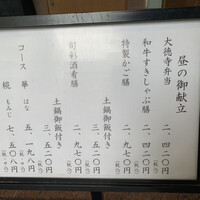 昼の御献立
大徳寺弁当
二、四二〇円
和牛すきしゃぶ膳
二、四二〇円
特製かご膳
二、九七〇円
土鍋御飯付き
三、五二〇円
旬彩酒肴膳
二、九七〇円
土鍋御飯付き
三、五二〇円
コース
華 はな
五、一九八円
椛 もんじ
七、五〇八円